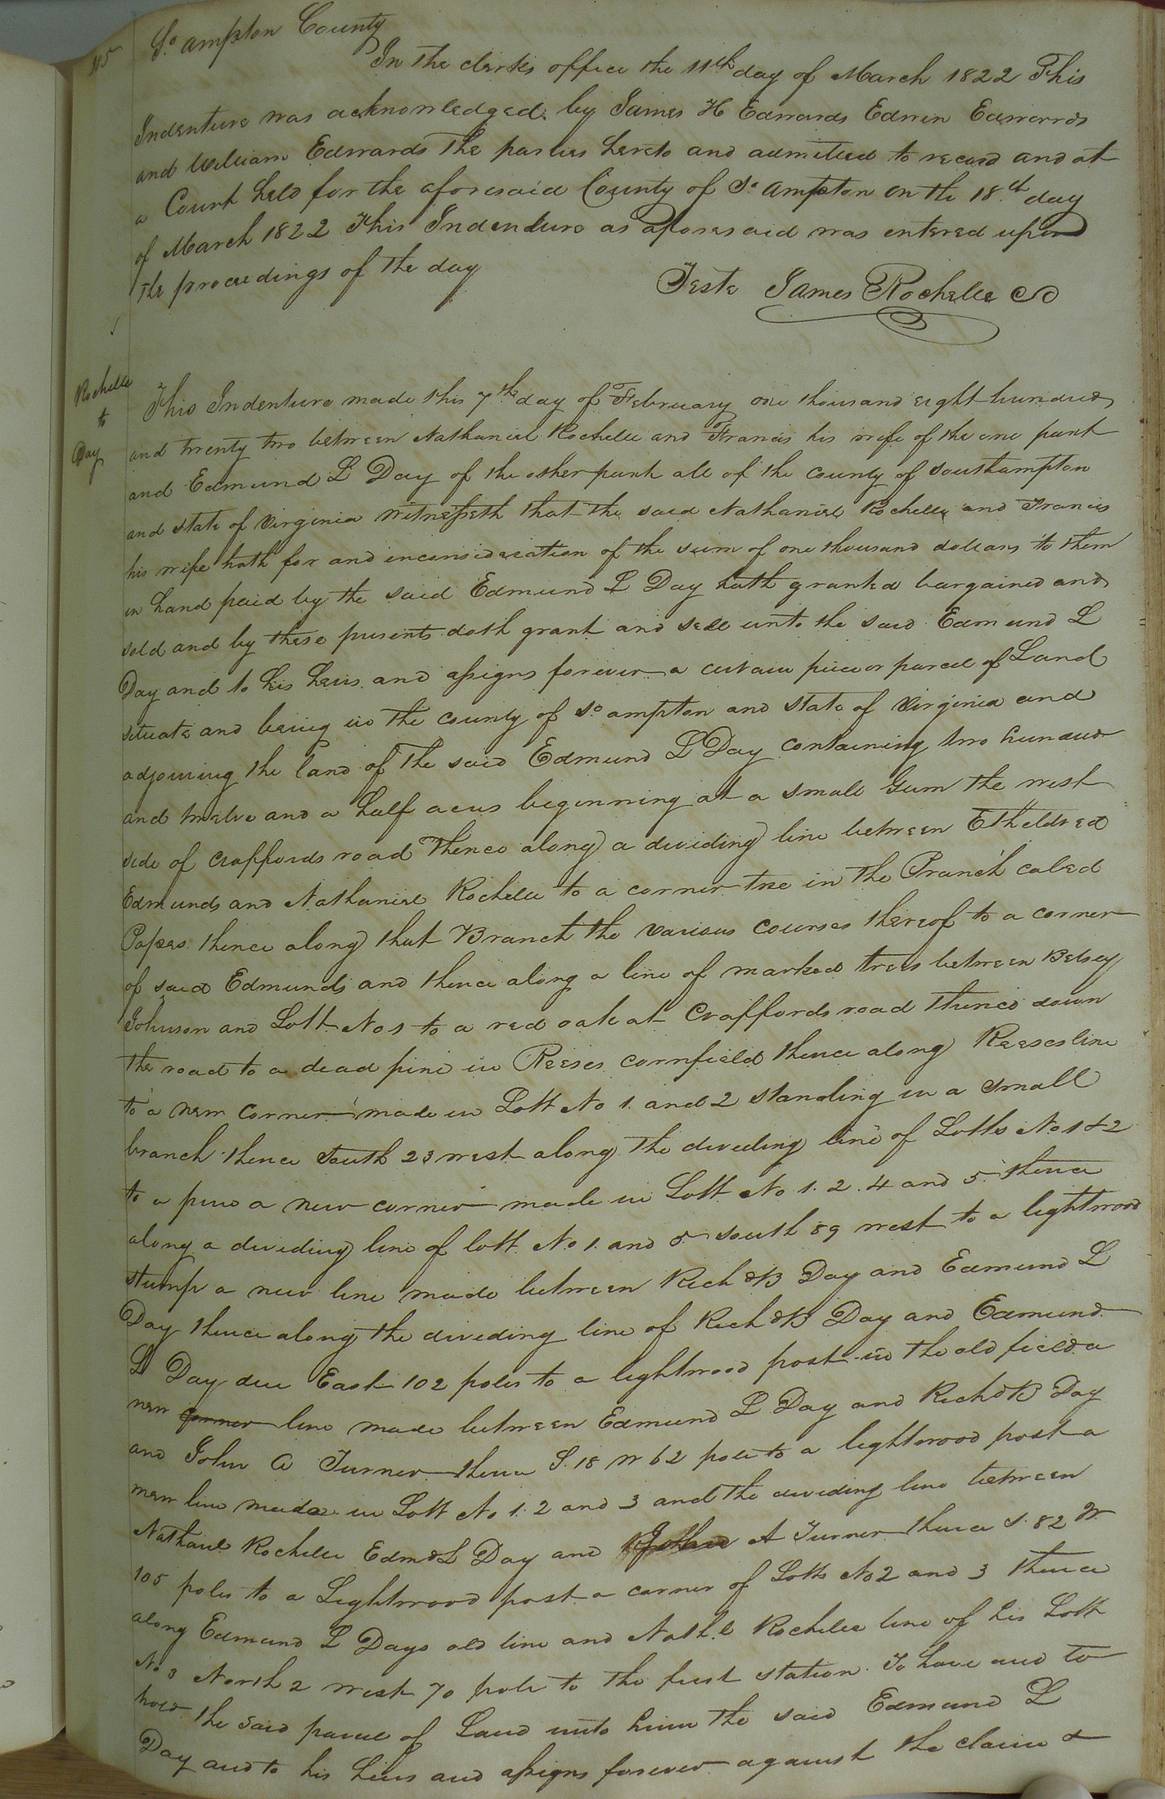 So ampton County
In the clerks office the 11th day of March 1822 This
Indenture was acknowledged by James H Edwards Edwin Edwards
and William Edwards the parties hereto and admitted to record and at
a Court held for the aforesaid County of So ampton on the 18th day
of March 1822 This Indenture as aforesaid was entered upon
the proceedings of the day
Teste James Rochelle
Rochelle
to
Day
This Indenture made this 7th day of February one thousand eight hundred
and twenty two between Nathaniel Rochelle and Francis his wife of the one part
and Edmund L Day of the other part all of the county of Southampton
and state of Virginia witnesseth that the said Nathaniel Rochelle and Francis
his wife hath for and inconsideration of the sum of one thousand dollars to them
in hand paid by the said Edmund L Day hath granted bargained and
sold and by these presents doth grant and sell unto the said Edmund L
Day and to his heirs and assigns forever a certain piece or parcel of Land
situate and being in the county of So ampton and state of Virginia and
adjoining the land of the said Edmund L Day containing two hundred
and twelve and a half acres beginning at a small Gum the west
side of Craffords road Thence along a dividing line between Etheldred
Edmunds and Nathaniel Rochelle to a corner tree in the Branch called
Popes thence along that Branch the various courses thereof to a corner
of said Edmunds and thence along a line of marked trees between Betsey
Johnson and Lott No 1 to a red oak at Craffords road thence down
the road to a dead pine in Reeses cornfield thence along Reeses line
to a new corner made in Lott No 1 and 2 standing in a small
branch thence South 23 west along the dividing line of Lotts No 1 & 2
to a pine a new corner made in Lott No 1. 2. 4 and 5 thence
along a dividing line of lott No 1. and 5 South 89 west to a lightwood
stump a new line made between Richd B Day and Edmund L
Day thence along the dividing line of Richd B Day and Edmund
L Day due East 102 poles to a lightwood post in the old field a
new corner line made between Edmund L Day and Richd B Day
and John A Turner thence S. 18 W 62 pole to a lightwood post a
new line made in Lott No 1. 2 and 3 and the dividing line between
Nathaniel Rochelle Edmd L Day and A Turner thence S. 82 W
105 poles to a Lightwood post a corner of Lotts No 2 and 3 thence
along Edmund L Days old line and Nathl Rochelle line of his Lott
No 3 North 2 west 70 pole to the first station To have and to
hold the said parcel of Land unto him the said Edmund L
Day and to his heirs and assigns forever against the claim &